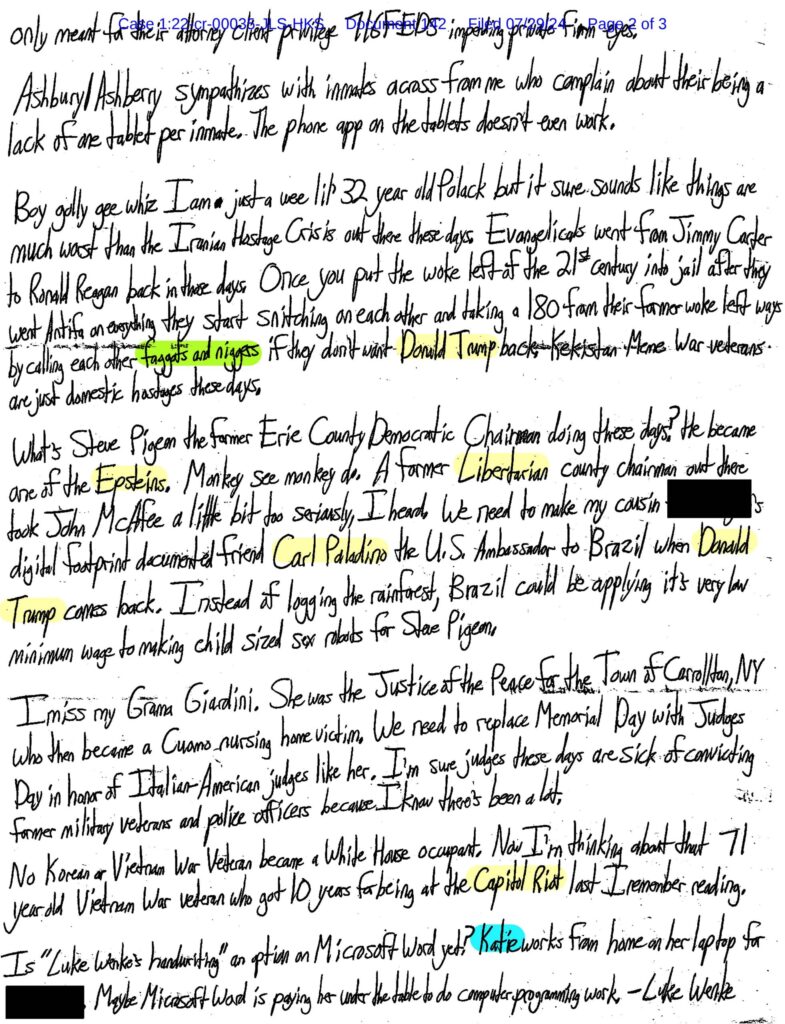 Case 1:22-cr-00035-JLS-HKS Document 142 Filed 07/29/24 Page 2 of 3
only meant for their attorney client privilege 716FEDS impending private firm eyes.
Ashbury/Ashberry sympathizes with inmates across from me who complain about their being a
lack of one tablet per inmate. The phone app on the tablets doesn't even work.
Boy golly gee whiz I am a just a wee lil' 32 year old Polack but it sure sounds like things are
much worst than the Iranian Hostage Crisis out there these days. Evangelicals went from Jimmy Carter
to Ronald Reagan back in those days. Once you put the woke left of the 21st century into jail after they
went Antifa on everything they start snitching on each other and taking a 180 from their former woke left ways
by calling each other faggots and niggers if they don't want Donald Trump back. Kekistan Meme War veterans
are just domestic hostages these days.
What's Steve Pigeon the former Erie County Democratic Chairman doing these days? He became
one of the Epsteins. Monkey see monkey do. A former Libertarian county chairman out there
took John McAfee a little bit too seriously, I heard. We need to make my cousin 's
digital footprint documented friend Carl Paladino the U.S. Ambassador to Brazil when Donald
Trump comes back. Instead of logging the rainforest, Brazil could be applying it's very low
minimum wage to making child sized sex robots for Steve Pigeon.
I miss my Grama Giardini. She was the Justice of the Peace for the Town of Carrollton, NY
who then became a Cuomo nursing home victim. We need to replace Memorial Day with Judges
Day in honor of Italian-American judges like her. I'm sure judges these days are sick of convicting
former military veterans and police officers because I know there's been a lot.
No Korean or Vietnam War Veteran became a White House occupant. Now I'm thinking about that 71
year old Vietnam War veteran who got 10 years for being at the Capitol Riot last I remember reading.
Is "Luke Wenke's handwriting" an option on Microsoft Word yet? Katie works from home on her laptop for
. Maybe Microsoft Word is paying her under the table to do computer programming work. -Luke Wenke